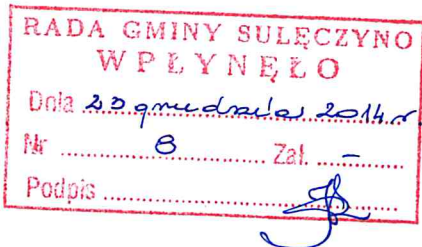 RADA GMINY SULĘCZYNO
WPŁYNĘŁO
Dnia 23 grudzień 2014 r.
Nr 8 Zał. –
Podpis